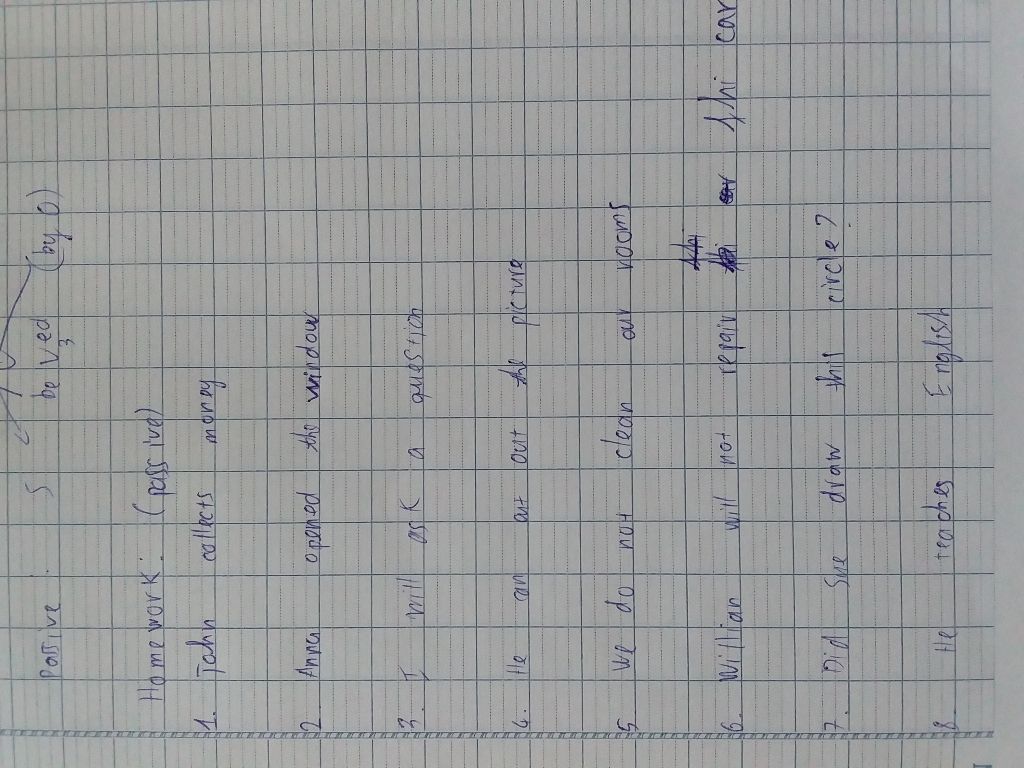 Passive: S be V3 ed (by O)
Homework: (passive)
1. John collects money
2. Anna opened the window
3. I will ask a question
4. He can cut out the picture
5. We do not clean our rooms
6. Willian will not repair car
7. Did Sue draw this circle?
8. He teaches English